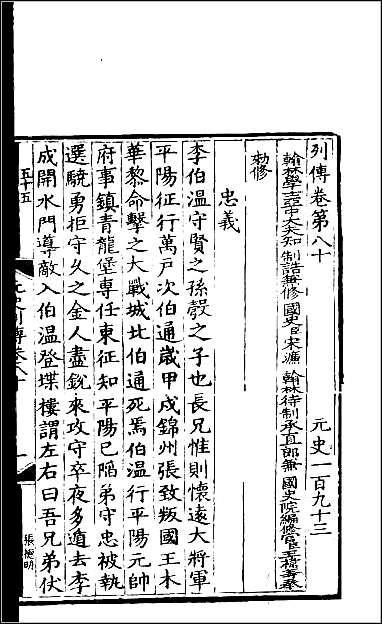 列傳卷第八十
元史一百九十三
翰林學士亞中大夫知 制誥兼修 國史臣宋濂 翰林待制承直郎兼 國史院編修官臣王禕等奉
勅修
忠義
李伯溫守賢之孫彀之子也長兄惟則懷遠大將軍
平陽征行萬戸次伯通歲甲戍錦州張致叛國王木
華黎命擊之大戰城北伯通死焉伯溫行平陽元帥
府事鎮青龍堡專任東征知平陽已陷弟守忠被執
選驍勇拒守久之金人盡銳來攻守卒夜多遁去李
成開水門導敵入伯溫登堞樓謂左右曰吾兄弟仗
五十五
元史列傳卷八十
一
張德明